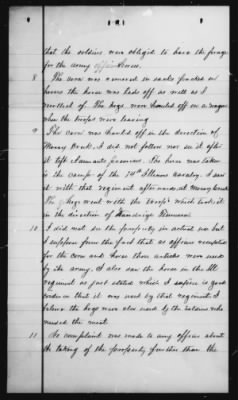 that the soldiers were obliged to have the forage
for the army officers horses.
8 The corn was removed in sacks packed on
horses the horse was lead off as well as I
recollect of. The hogs were hauled off in a wagon
when the troops were leaving
9 The corn was hauled off in the direction of
Mossy Creek. I did not follow nor see it after
it left claimants premises. The horse was taken
in the camp of the 14th Illinois cavalry. I saw
it with that regiment afterwards at Mossy Creek.
The hogs went with the troops which looked it
in the direction of
10 I did not see the property in actual use but
I suppose from the fact that as officers receipted
for the corn and horse these articles were used
by the army. I also saw the horse in the Ill
regiment as just stated which I suppose is good
evidence that it was used by that regiment. I
believe the hogs were also used by the soldiers who
needed the meat.
11 No complaint was made to any officer about
the taking of the property further than the